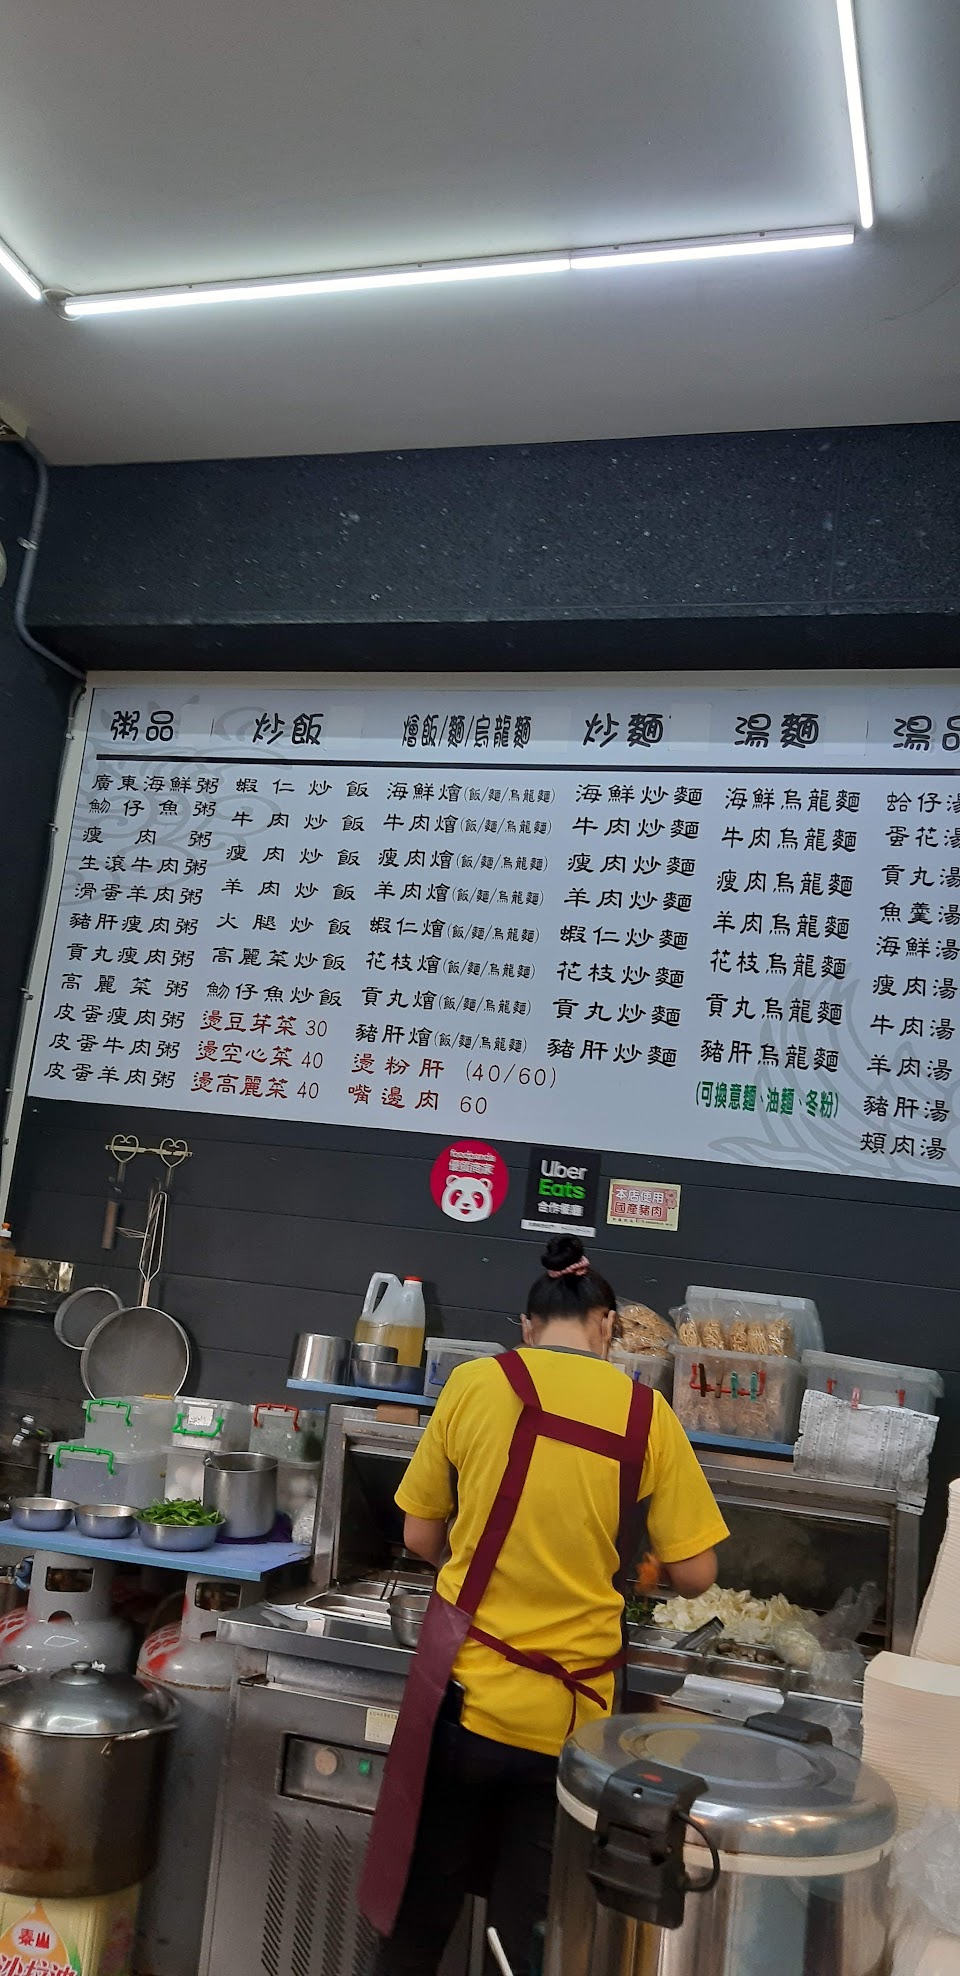 粥品
廣東海鮮粥
魩仔魚粥
瘦肉粥
生滾牛肉粥
滑蛋羊肉粥
豬肝瘦肉粥
貢丸瘦肉粥
高麗菜粥
皮蛋瘦肉粥
皮蛋牛肉粥
皮蛋羊肉粥
炒飯
蝦仁炒飯
牛肉炒飯
瘦肉炒飯
羊肉炒飯
火腿炒飯
高麗菜炒飯
魩仔魚炒飯
燙豆芽菜 30
燙空心菜 40
燙高麗菜 40
燴飯/麵/烏龍麵
海鮮燴(飯/麵/烏龍麵)
牛肉燴(飯/麵/烏龍麵)
瘦肉燴(飯/麵/烏龍麵)
羊肉燴(飯/麵/烏龍麵)
蝦仁燴(飯/麵/烏龍麵)
花枝燴(飯/麵/烏龍麵)
貢丸燴(飯/麵/烏龍麵)
豬肝燴(飯/麵/烏龍麵)
燙粉肝 (40/60)
嘴邊肉 60
炒麵
海鮮炒麵
牛肉炒麵
瘦肉炒麵
羊肉炒麵
蝦仁炒麵
花枝炒麵
貢丸炒麵
豬肝炒麵
湯麵
海鮮烏龍麵
牛肉烏龍麵
瘦肉烏龍麵
羊肉烏龍麵
花枝烏龍麵
貢丸烏龍麵
豬肝烏龍麵
(可換意麵、油麵、冬粉)
湯品
蛤仔湯
蛋花湯
貢丸湯
魚羹湯
海鮮湯
瘦肉湯
牛肉湯
羊肉湯
豬肝湯
頰肉湯
foodpanda
優質商家
Uber
Eats
合作餐廳
本店使用
國產豬肉
泰山
沙拉油